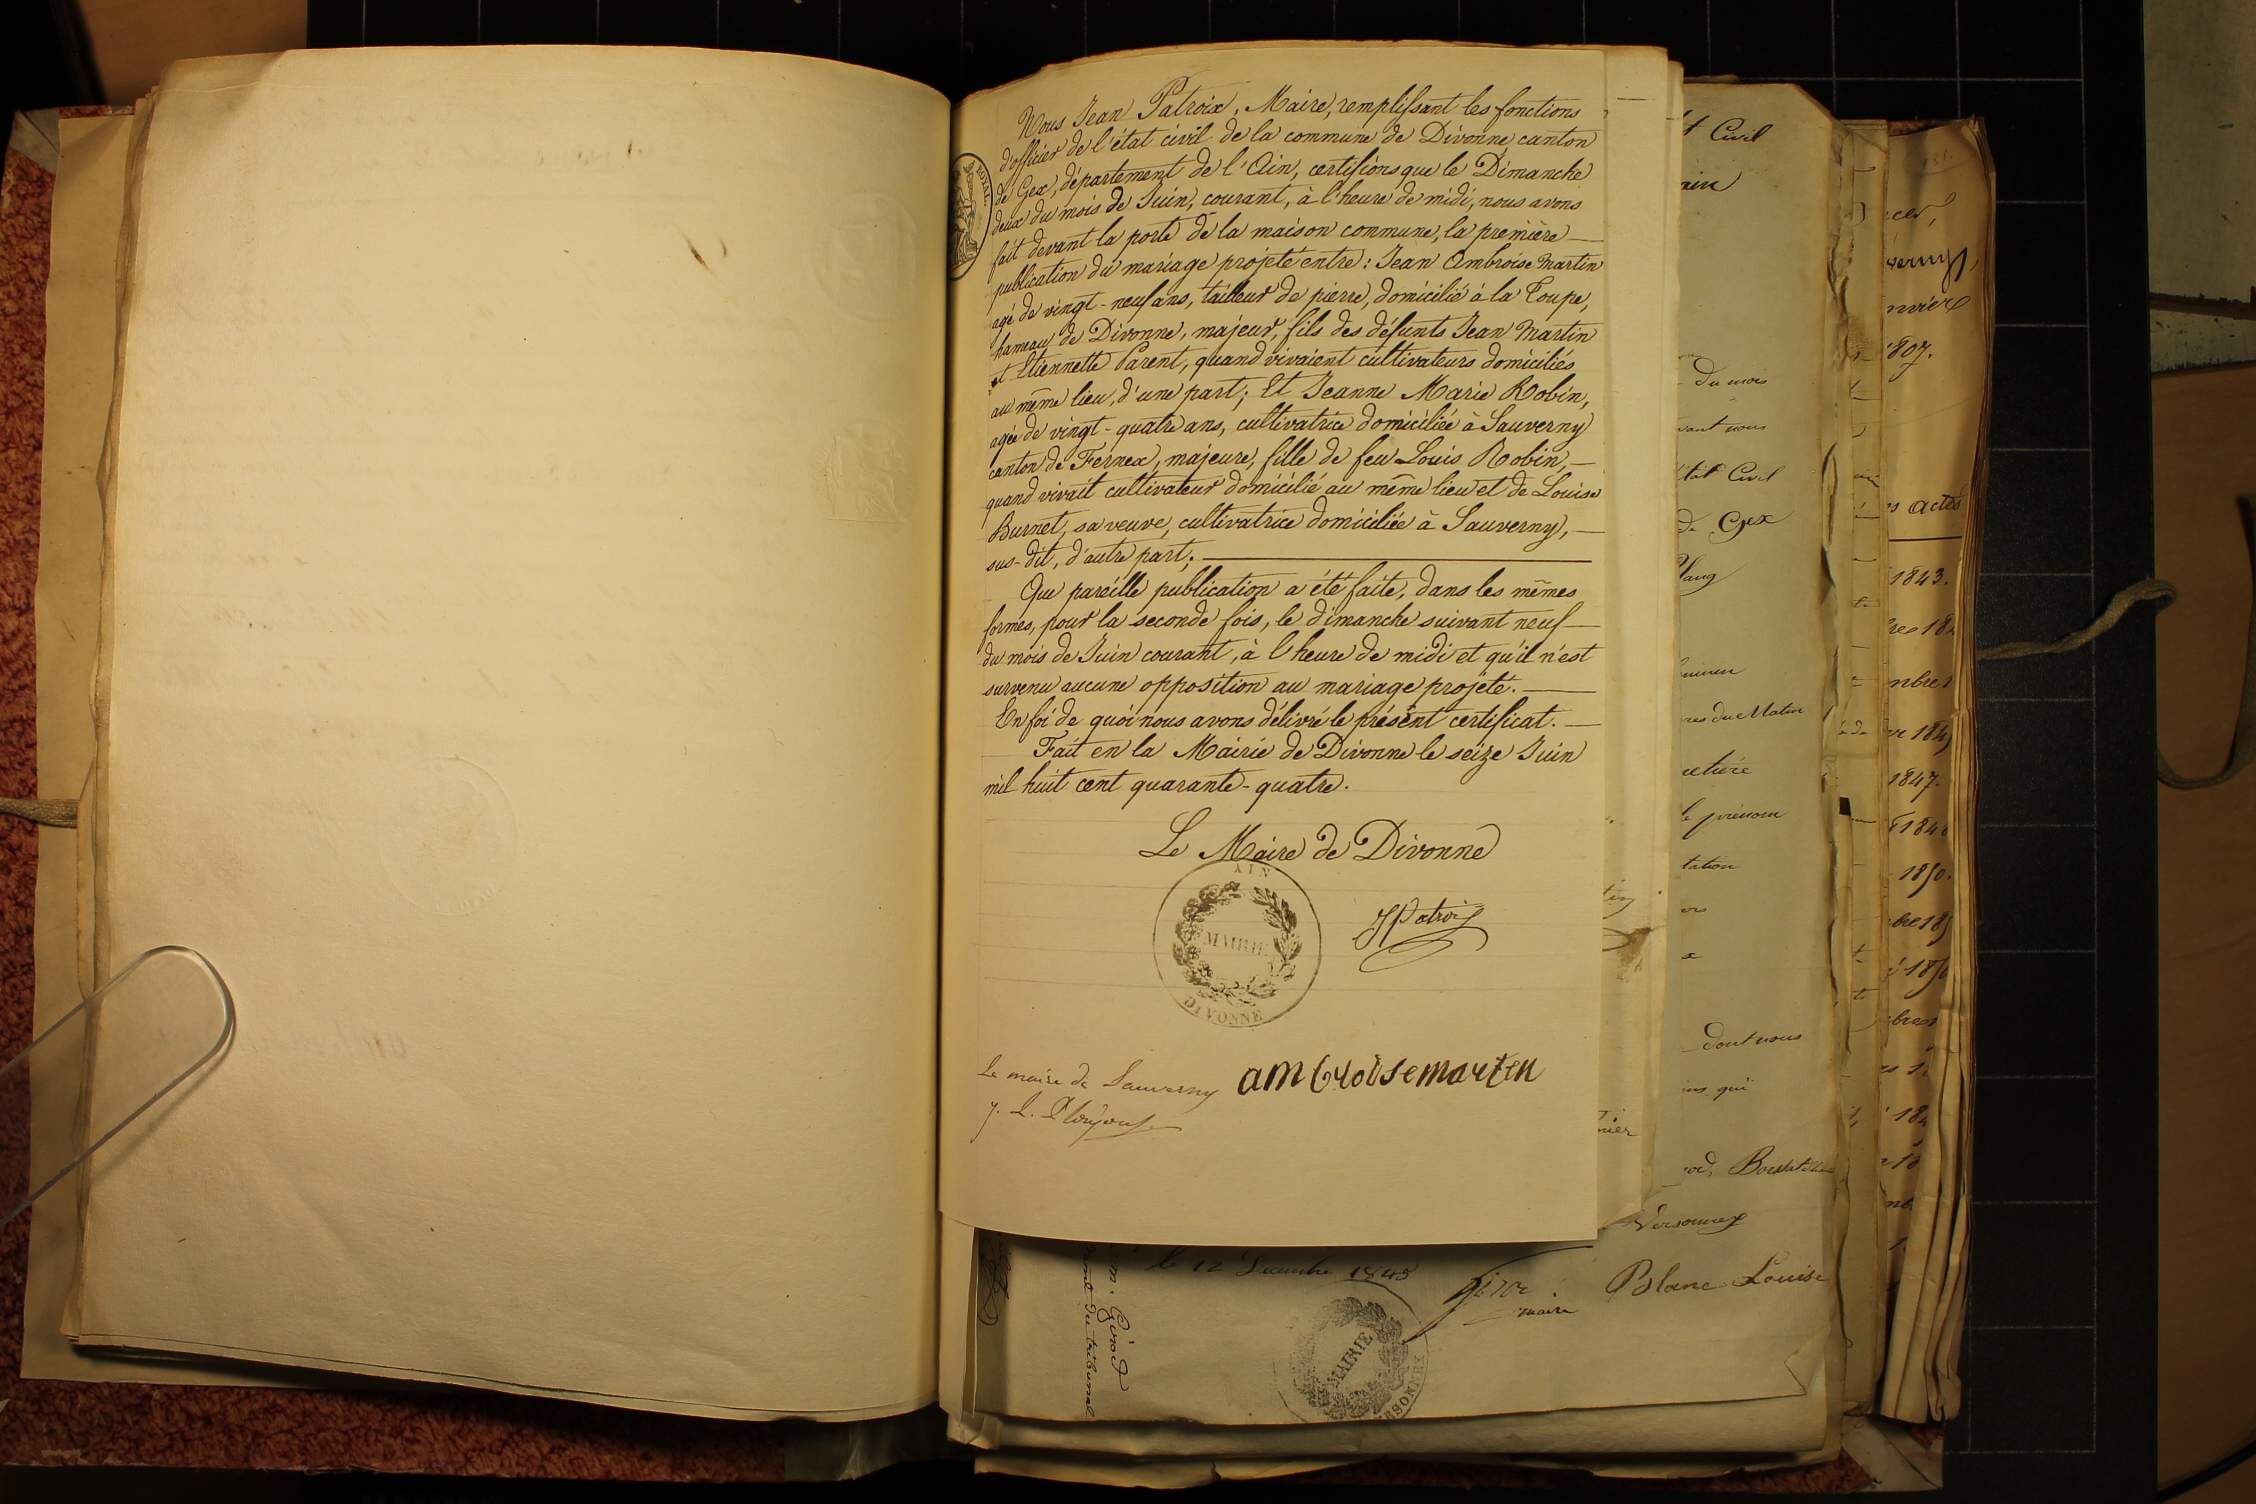 Nous Jean Patroix, Maire, remplissant les fonctions
d'officier de l'état civil de la commune de Divonne, canton
de Gex, département de l'Ain, certifions que le Dimanche
deux du mois de Juin, courant, à l'heure de midi, nous avons
fait devant la porte de la maison commune, la première
publication du mariage projeté entre: Jean Ambroise Martin
agé de vingt-neuf ans, tailleur de pierre, domicilié à la Toupe,
hameau de Divonne, majeur, fils des défunts Jean Martin
et Etiennette Parent, quand vivaient cultivateurs domiciliés
au même lieu, d'une part; Et Jeanne Marie Robin,
agée de vingt-quatre ans, cultivatrice domiciliée à Sauverny
canton de Fernex, majeure, fille de feu Louis Robin,
quand vivait cultivateur domicilié au même lieu et de Louise
Burnet, sa veuve, cultivatrice domiciliée à Sauverny,
sus-dit, d'autre part;
Que pareille publication a été faite, dans les mêmes
formes, pour la seconde fois, le dimanche suivant neuf
du mois de Juin courant, à l'heure de midi et qu'il n'est
survenu aucune opposition au mariage projeté.
En foi de quoi nous avons délivré le présent certificat.
Fait en la Mairie de Divonne le seize Juin
mil huit cent quarante-quatre.
Le Maire de Divonne
JPatroix
AIN
MAIRIE
DIVONNE
Le maire de Sauverny
ambroisemarten
ROYAL
le 12 Décembre 1845
maire
Blanc Louise
MAIRIE
Girod
du tribunal
Versonnex
t Civil
du mois
vant nous
Civil
de Gex
res du Matin
le prénom
tation
dont nous
ins qui
1807.
s actes
1843.
1847.
1850.